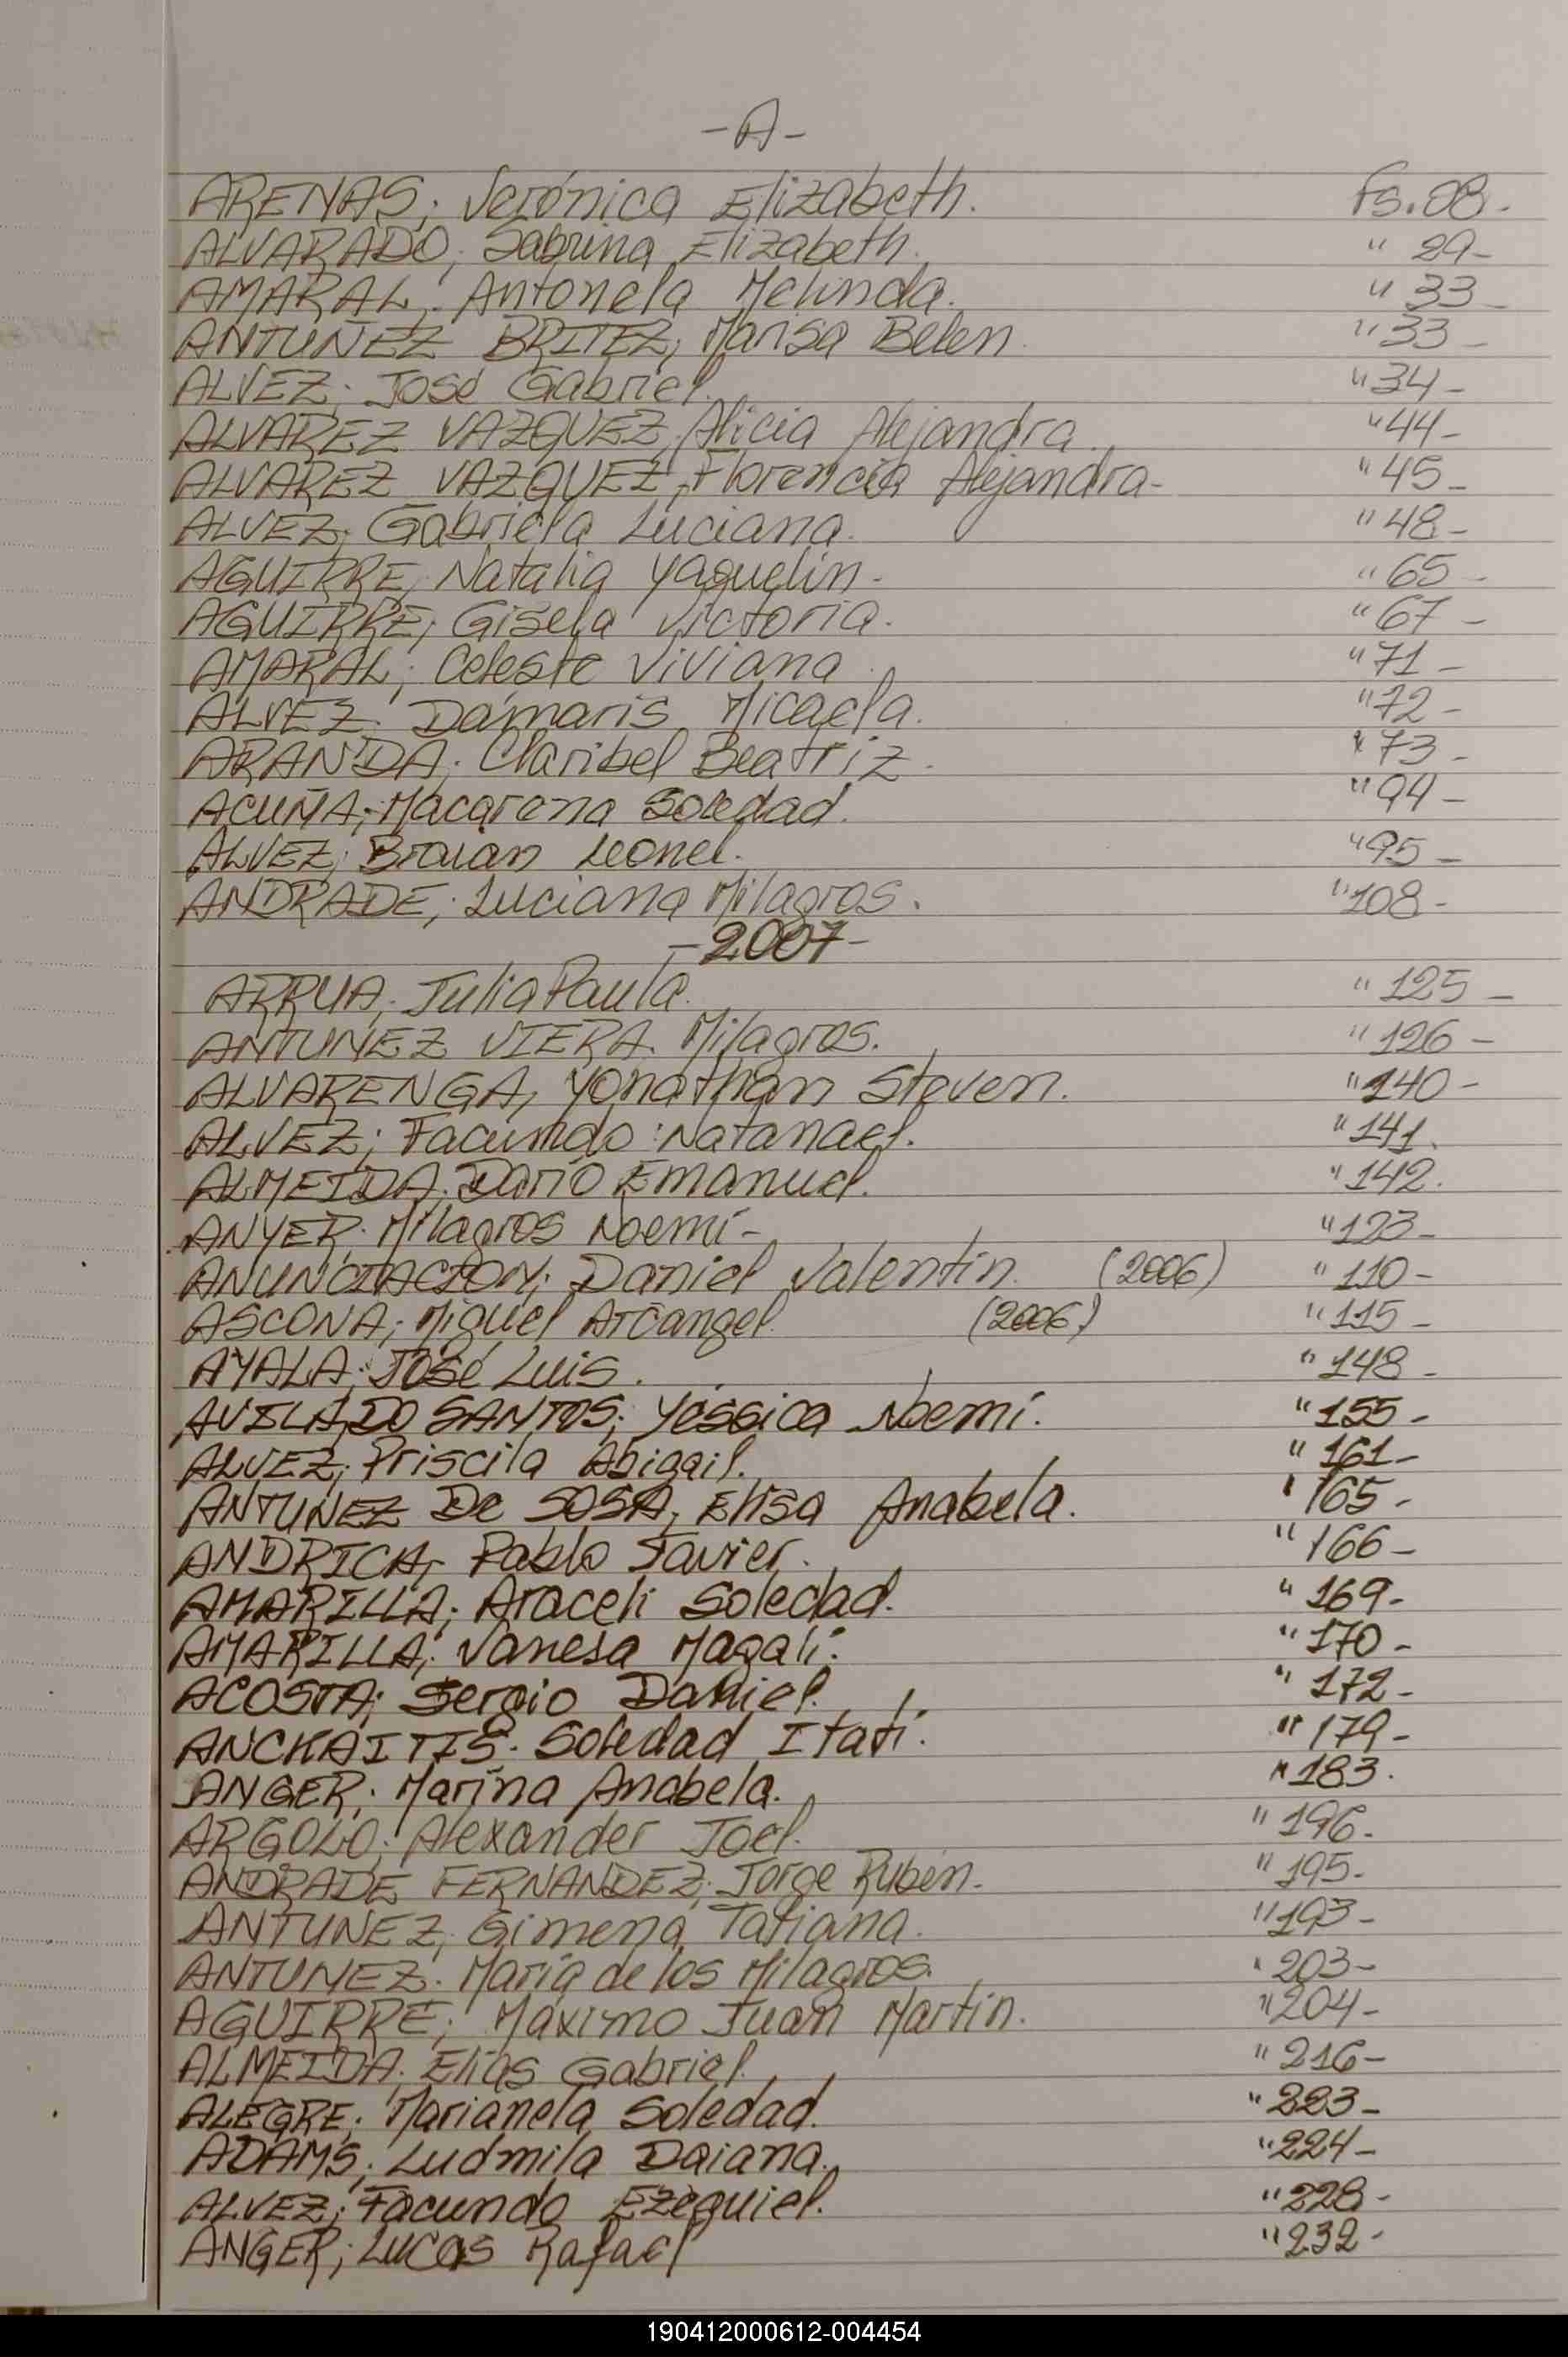 -A-
ARENAS; Verónica Elizabeth. Fs. 08.-
ALVARADO; Sabrina Elizabeth. " 29-
AMARAL; Antonela Melinda. " 33-
ANTUNEZ BRITEZ; Marisa Belen. " 33-
ALVEZ; José Gabriel. " 34-
ALVAREZ VAZQUEZ; Alicia Alejandra. " 44-
ALVAREZ VAZQUEZ; Florencia Alejandra- " 45-
ALVEZ; Gabriela Luciana. " 48-
AGUIRRE; Natalia Yaquelin- " 65-
AGUIRRE; Gisela Victoria. " 67-
AMARAL; Celeste Viviana. " 71-
ALVEZ; Dámaris Micaela. " 72-
ARANDA; Claribel Beatriz. " 73-
ACUÑA; Macarena Soledad. " 94-
ALVEZ; Braian Leonel. " 95-
ANDRADE; Luciana Milagros. " 108-
-2007-
ARRUA; Julia Paula. " 125-
ANTUNEZ VIERA. Milagros. " 126-
ALVARENGA; Yonathan Steven. " 140-
ALVEZ; Facundo Natanael. " 141.
ALMEIDA; Darío Emanuel. " 142.
ANYER; Milagros Noemí- " 123-
ANUNCIACION; Daniel Valentín. (2006) " 110-
ASCONA; Miguel Arcangel. (2006) " 115-
AYALA; José Luis. " 148-
AVILA DO SANTOS; Yéssica Noemí. " 155-
ALVEZ; Priscila Abigail. " 161-
ANTUNEZ De SOSA; Elisa Anabela. " 165-
ANDRICH; Pablo Javier. " 166-
AMARILLA; Araceli Soledad. " 169-
AMARILLA; Vanesa Magalí. " 170-
ACOSTA; Sergio Daniel. " 172-
ANCKAITIS. Soledad Itatí. " 179-
ANGER; Marina Anabela. " 183.
ARGOLO; Alexander Joel. " 196.
ANDRADE FERNANDEZ; Jorge Rubén. " 195-
ANTUNEZ; Gimena Tatiana. " 193-
ANTUNEZ. María de los Milagros. " 203-
AGUIRRE; Máximo Juan Martín. " 204-
ALMEIDA; Elías Gabriel. " 216-
ALEGRE; Marianela Soledad. " 223-
ADAMS; Ludmila Daiana. " 224-
ALVEZ; Facundo Ezequiel. " 228-
ANGER; Lucas Rafael " 232-
190412000612-004454